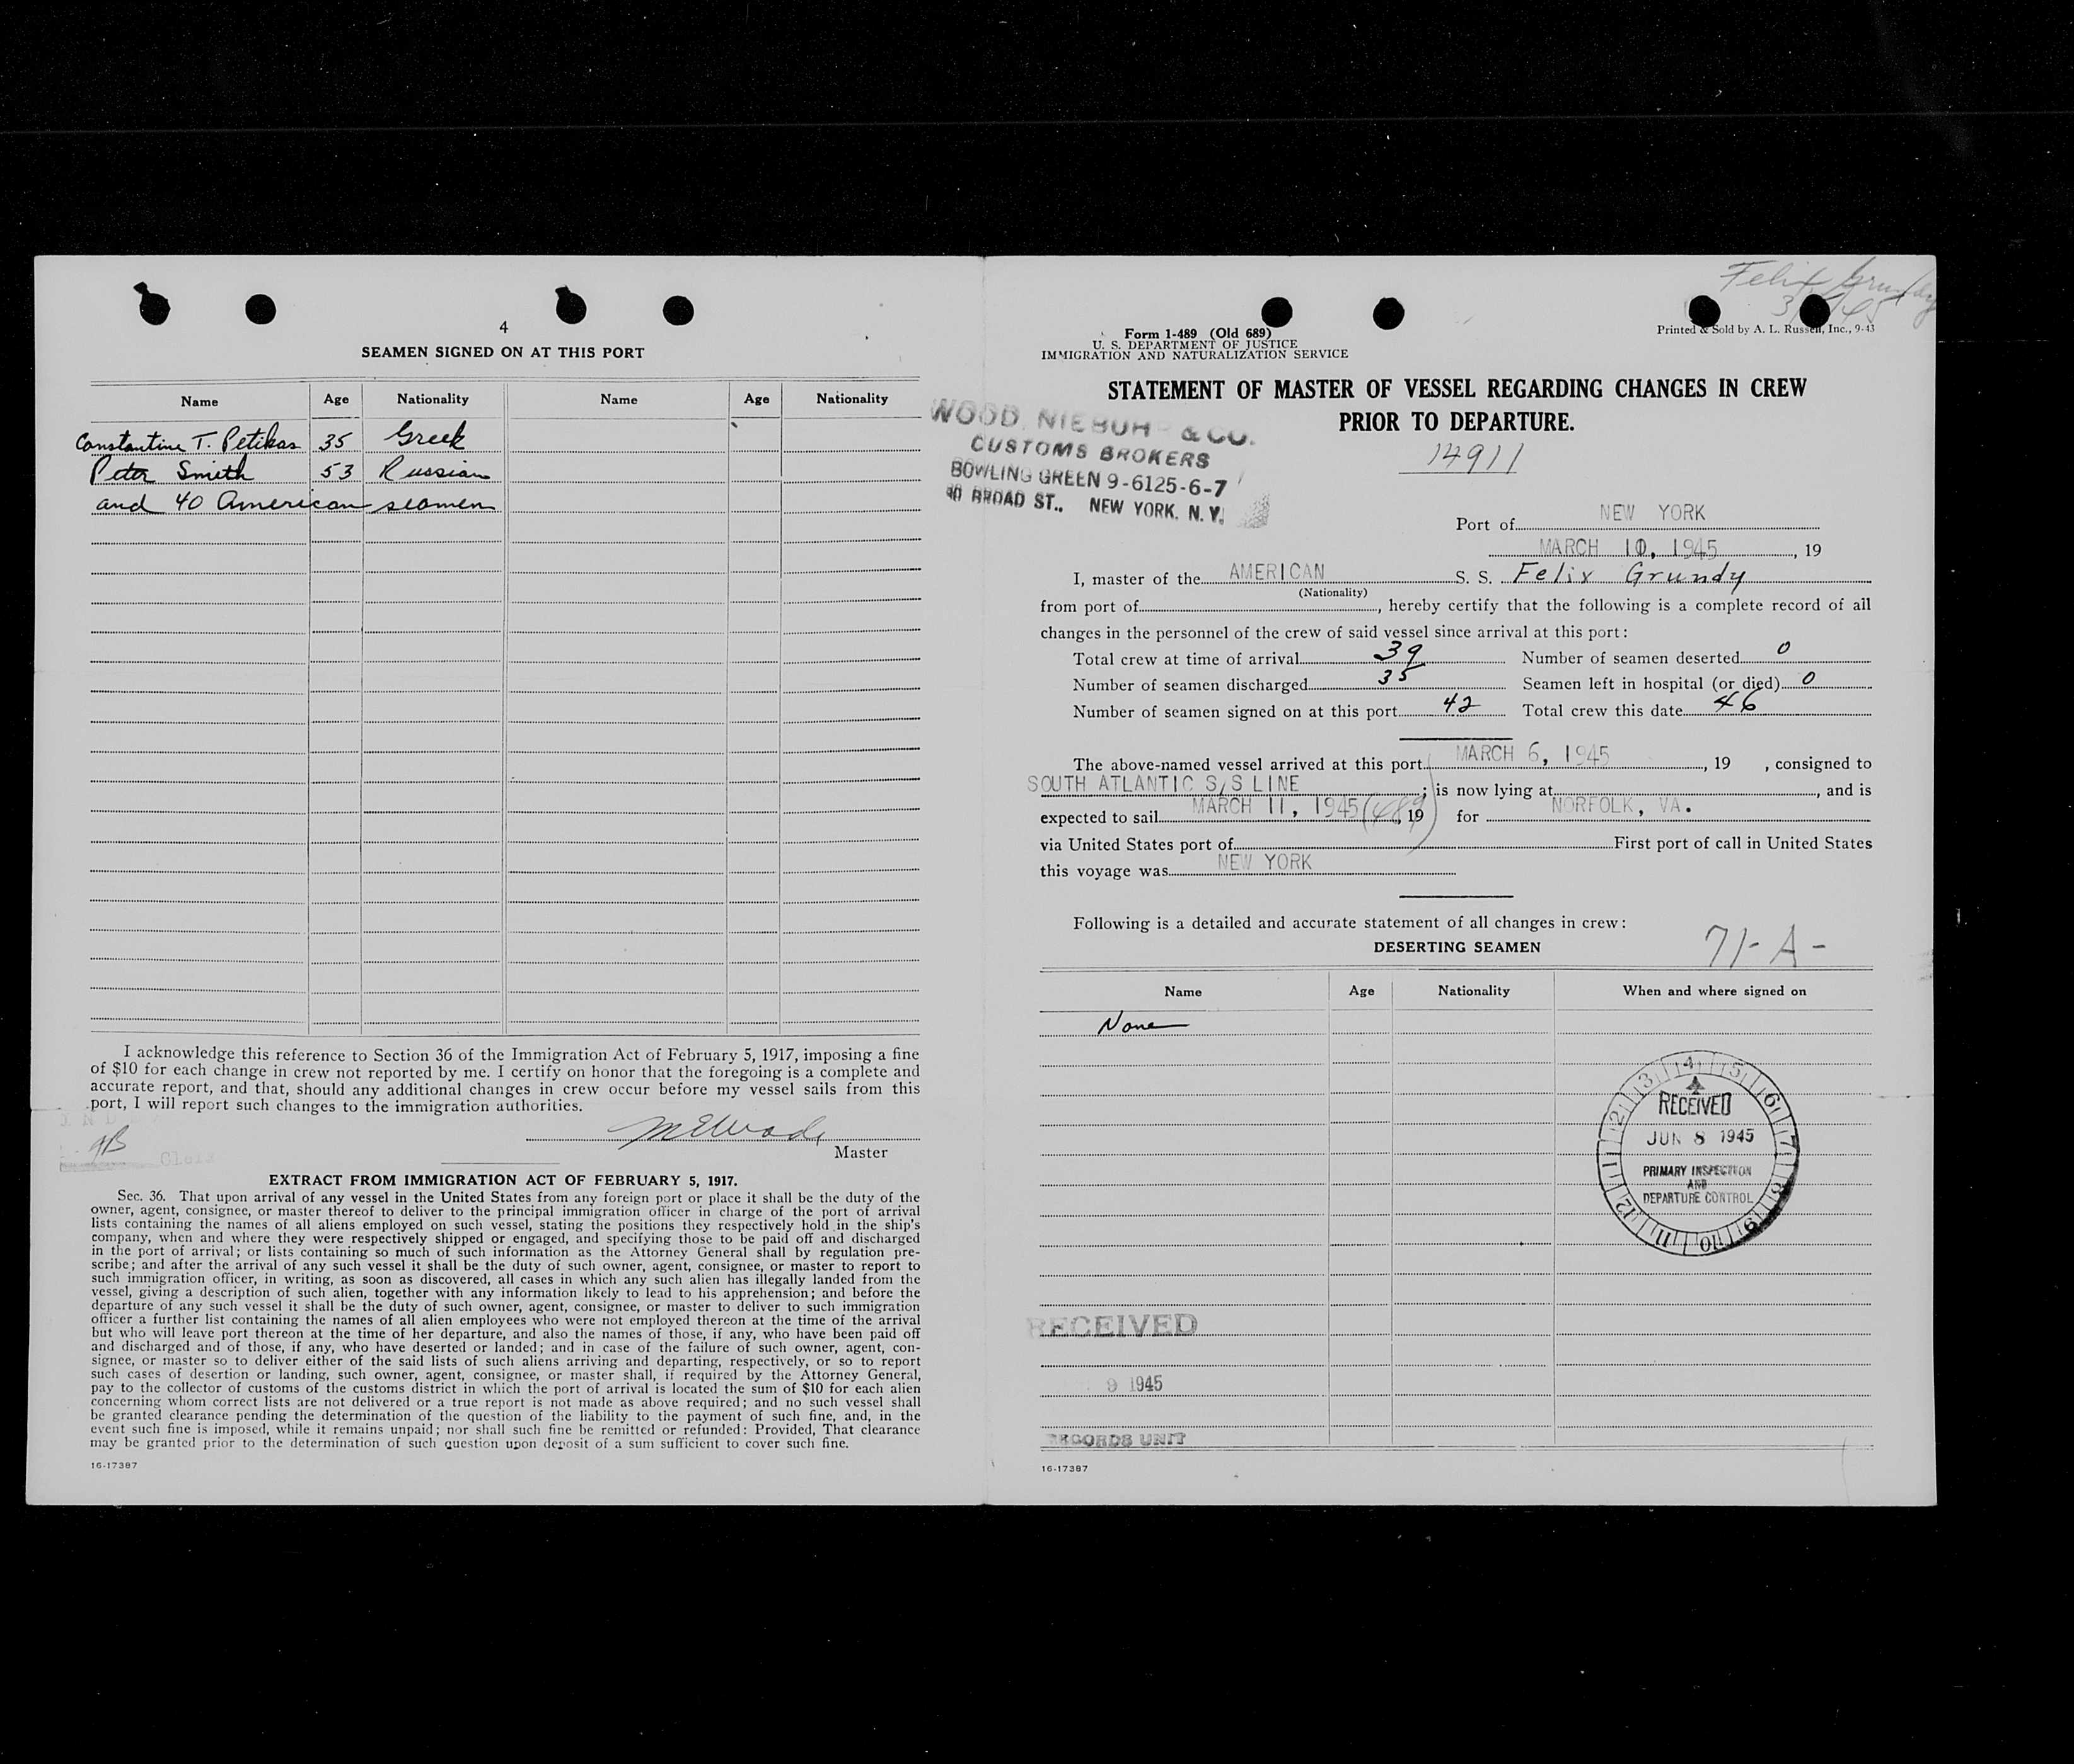 4
SEAMEN SIGNED ON AT THIS PORT
Name Age Nationality Name Age Nationality
Constantine T. Petikas 35 Greek
Peter Smith 53 Russian
and 40 American seamen
I acknowledge this reference to Section 36 of the Immigration Act of February 5, 1917, imposing a fine
of $10 for each change in crew not reported by me. I certify on honor that the foregoing is a complete and
accurate report, and that, should any additional changes in crew occur before my vessel sails from this
port, I will report such changes to the immigration authorities.
Master
EXTRACT FROM IMMIGRATION ACT OF FEBRUARY 5, 1917.
Sec. 36. That upon arrival of any vessel in the United States from any foreign port or place it shall be the duty of the
owner, agent, consignee, or master thereof to deliver to the principal immigration officer in charge of the port of arrival
lists containing the names of all aliens employed on such vessel, stating the positions they respectively hold in the ship's
company, when and where they were respectively shipped or engaged, and specifying those to be paid off and discharged
in the port of arrival; or lists containing so much of such information as the Attorney General shall by regulation pre-
scribe; and after the arrival of any such vessel it shall be the duty of such owner, agent, consignee, or master to report to
such immigration officer, in writing, as soon as discovered, all cases in which any such alien has illegally landed from the
vessel, giving a description of such alien, together with any information likely to lead to his apprehension; and before the
departure of any such vessel it shall be the duty of such owner, agent, consignee, or master to deliver to such immigration
officer a further list containing the names of all alien employees who were not employed thereon at the time of the arrival
but who will leave port thereon at the time of her departure, and also the names of those, if any, who have been paid off
and discharged and of those, if any, who have deserted or landed; and in case of the failure of such owner, agent, con-
signee, or master so to deliver either of the said lists of such aliens arriving and departing, respectively, or so to report
such cases of desertion or landing, such owner, agent, consignee, or master shall, if required by the Attorney General,
pay to the collector of customs of the customs district in which the port of arrival is located the sum of $10 for each alien
concerning whom correct lists are not delivered or a true report is not made as above required; and no such vessel shall
be granted clearance pending the determination of the question of the liability to the payment of such fine, and, in the
event such fine is imposed, while it remains unpaid; nor shall such fine be remitted or refunded: Provided, That clearance
may be granted prior to the determination of such question upon deposit of a sum sufficient to cover such fine.
16-17387
Felix Grundy
Form 1-489 (Old 689)
U. S. DEPARTMENT OF JUSTICE
IMMIGRATION AND NATURALIZATION SERVICE
Printed & Sold by A. L. Russell, Inc., 9-43
STATEMENT OF MASTER OF VESSEL REGARDING CHANGES IN CREW
PRIOR TO DEPARTURE.
WOOD, NIEBUHR & CO.
CUSTOMS BROKERS
BOWLING GREEN 9-6125-6-7
BROAD ST., NEW YORK, N. Y.
14911
Port of NEW YORK
MARCH 10, 1945, 19
I, master of the AMERICAN S. S. Felix Grundy
(Nationality)
from port of, hereby certify that the following is a complete record of all
changes in the personnel of the crew of said vessel since arrival at this port:
Total crew at time of arrival 39 Number of seamen deserted 0
Number of seamen discharged 35 Seamen left in hospital (or died) 0
Number of seamen signed on at this port 42 Total crew this date 46
The above-named vessel arrived at this port MARCH 6, 1945, 19 , consigned to
SOUTH ATLANTIC S/S LINE; is now lying at, and is
expected to sail MARCH 11, 1945 (489), 19 for NORFOLK, VA.
via United States port of First port of call in United States
this voyage was NEW YORK
Following is a detailed and accurate statement of all changes in crew:
DESERTING SEAMEN
71-A-
Name Age Nationality When and where signed on
None
1 2 3 4 5 6 7 8 9 10 11 12
RECEIVED
JUN 8 1945
PRIMARY INSPECTION
AND
DEPARTURE CONTROL
RECEIVED
9 1945
RECORDS UNIT
16-17387